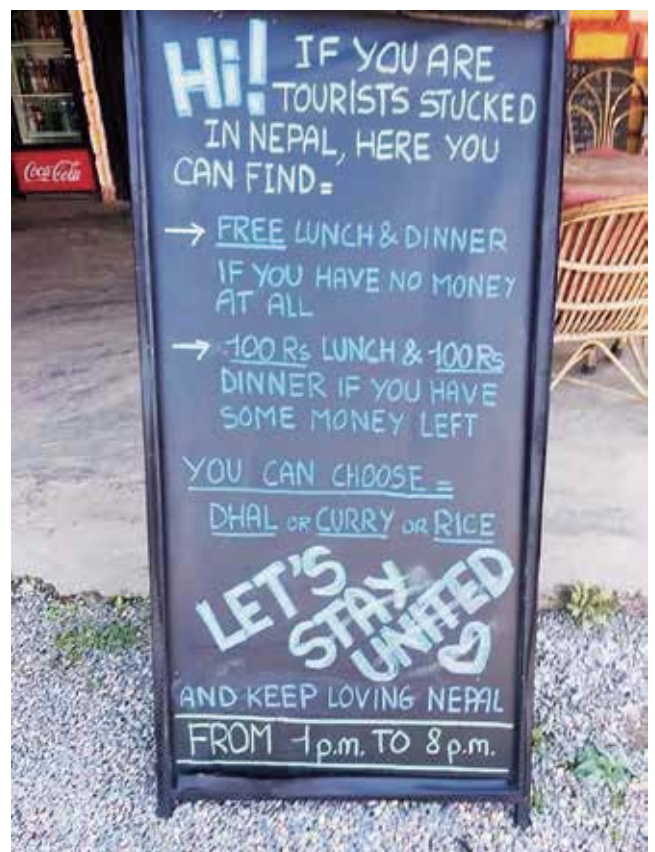 Hi! IF YOU ARE
TOURISTS STUCKED
IN NEPAL, HERE YOU
CAN FIND=
→ FREE LUNCH & DINNER
IF YOU HAVE NO MONEY
AT ALL
→ 100 Rs LUNCH & 100 Rs
DINNER IF YOU HAVE
SOME MONEY LEFT
YOU CAN CHOOSE =
DHAL OR CURRY OR RICE
LET'S
STAY
UNITED
AND KEEP LOVING NEPAL
FROM 1 p.m. TO 8 p.m.
Coca-Cola